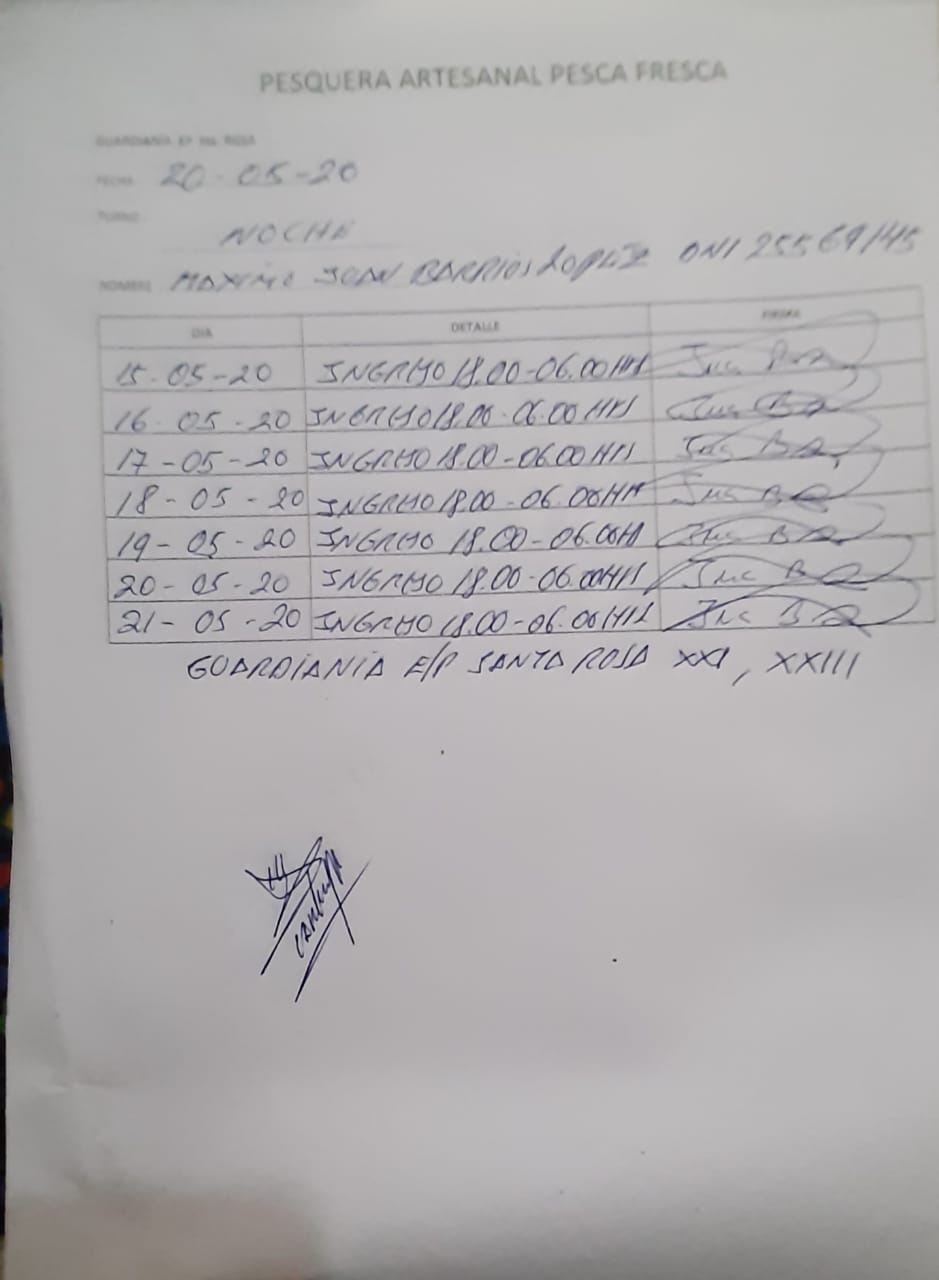 PESQUERA ARTESANAL PESCA FRESCA
GUARDIANÍA EP Sta. ROSA
FECHA: 20-05-20
TURNO:
NOCHE
NOMBRE: MAXIMO JUAN BARRIOS LOPEZ DNI 25569145
DIA DETALLE FIRMA
15-05-20 INGRESO 18.00-06.00 HRS
16-05-20 INGRESO 18.00-06.00 HRS
17-05-20 INGRESO 18.00-06.00 HRS
18-05-20 INGRESO 18.00-06.00 HRS
19-05-20 INGRESO 18.00-06.00 HRS
20-05-20 INGRESO 18.00-06.00 HRS
21-05-20 INGRESO 18.00-06.00 HRS
GUARDIANIA E/P SANTA ROSA XXI, XXIII